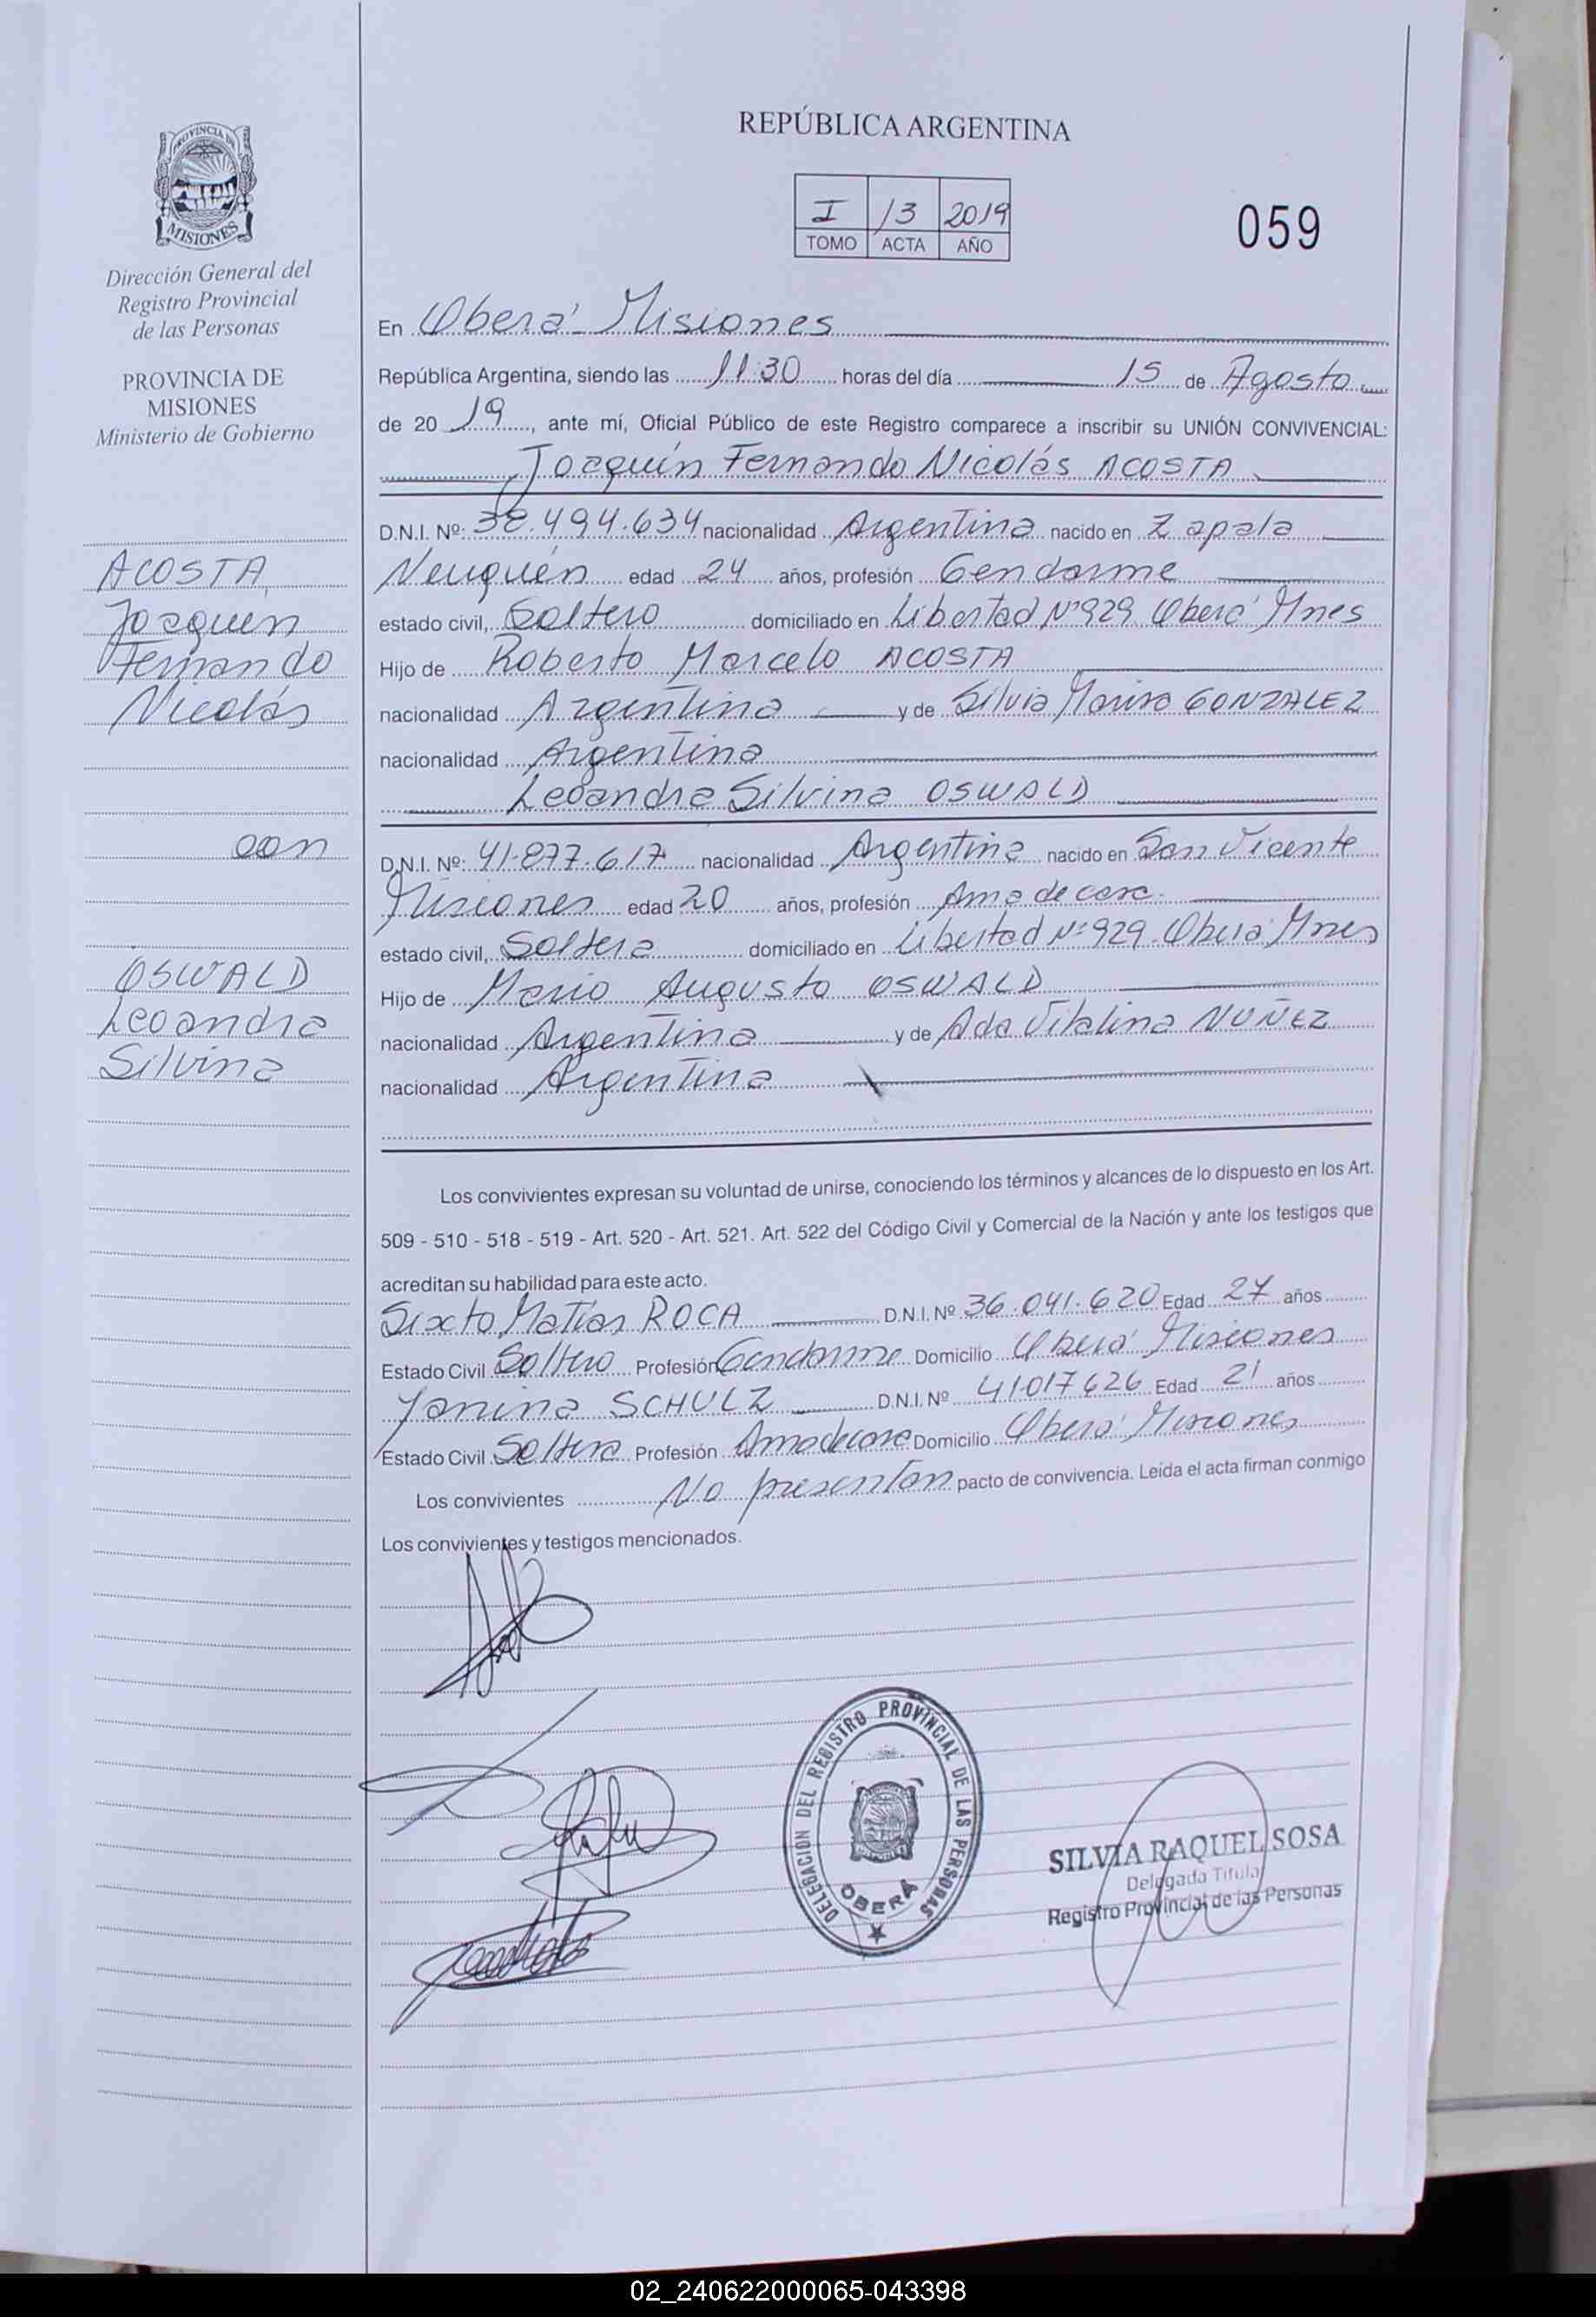 PROVINCIA DE
MISIONES
Dirección General del
Registro Provincial
de las Personas
PROVINCIA DE
MISIONES
Ministerio de Gobierno
ACOSTA
Joaquín
Fernando
Nicolás
con
OSWALD
Leoandra
Silvina
REPÚBLICA ARGENTINA
I 13 2019
TOMO ACTA AÑO
059
En Oberá - Misiones
República Argentina, siendo las 11:30 horas del día 15 de Agosto
de 20 19, ante mí, Oficial Público de este Registro comparece a inscribir su UNIÓN CONVIVENCIAL:
Joaquín Fernando Nicolás ACOSTA
D.N.I. Nº: 38.494.634 nacionalidad Argentina nacido en Zapala
Neuquén edad 24 años, profesión Gendarme
estado civil, Soltero domiciliado en Libertad Nº 929 Oberá Mnes
Hijo de Roberto Marcelo ACOSTA
nacionalidad Argentina y de Silvia Marisa GONZALEZ
nacionalidad Argentina
Leoandra Silvina OSWALD
D.N.I. Nº: 41.877.617 nacionalidad Argentina nacido en San Vicente
Misiones edad 20 años, profesión Ama de casa
estado civil, Soltera domiciliado en Libertad Nº 929. Oberá Mnes
Hijo de Mario Augusto OSWALD
nacionalidad Argentina y de Ada Vitalina NUÑEZ
nacionalidad Argentina
Los convivientes expresan su voluntad de unirse, conociendo los términos y alcances de lo dispuesto en los Art.
509 - 510 - 518 - 519 - Art. 520 - Art. 521. Art. 522 del Código Civil y Comercial de la Nación y ante los testigos que
acreditan su habilidad para este acto.
Sixto Matías ROCA D.N.I. Nº 36.041.620 Edad 27 años
Estado Civil Soltero Profesión Gendarme Domicilio Oberá Misiones
Yanina SCHULZ D.N.I. Nº 41017626 Edad 21 años
Estado Civil Soltera Profesión Ama de casa Domicilio Oberá Misiones
Los convivientes No presentan pacto de convivencia. Leída el acta firman conmigo
Los convivientes y testigos mencionados.
DELEGACION DEL REGISTRO PROVINCIAL DE LAS PERSONAS
OBERÁ
SILVIA RAQUEL SOSA
Delegada Titular
Registro Provincial de las Personas
02_240622000065-043398